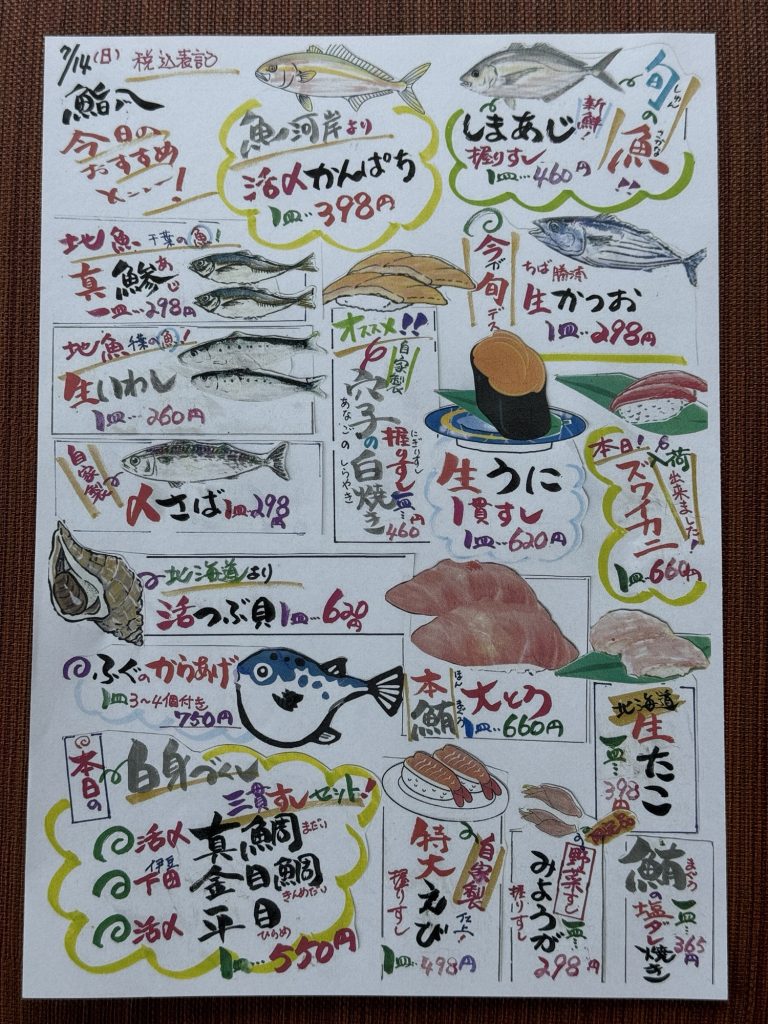 7/14(日) 税込表記
鮨八
今日の
おすすめ
メニュー!
魚河岸より
活〆かんぱち
1皿…398円
旬の魚!!
しゅん
さかな
新鮮!
しまあじ
握りすし
1皿…460円
地魚 千葉の魚!
真鯵
あじ
一皿…298円
今が旬デス
ちば勝浦
生かつお
1皿…298円
地魚 千葉の魚!
生いわし
1皿…260円
オススメ!!
自家製
穴子の白焼き
あなごのしらやき
にぎりすし
握りすし
一皿…460円
生うに
1貫すし
1皿…620円
本日!入荷出来ました!
ズワイカニ
1皿…660円
自家製
〆さば 1皿…298円
北海道より
活つぶ貝 1皿…620円
ふぐのからあげ
1皿3~4個付き
750円
本鮪
ほんまぐろ
大とろ
1皿…660円
北海道
生たこ
一皿…398円
本日の
白身づくし
三貫すしセット!
活〆 真鯛 まだい
伊豆
下田 金目鯛 きんめだい
活〆 平目 ひらめ
1皿…550円
自家製仕上!
特大えび
握りすし
1皿…498円
野菜すし
みょうが
握りすし
一皿…298円
鮪の塩ダレ焼き
まぐろ
一皿…365円